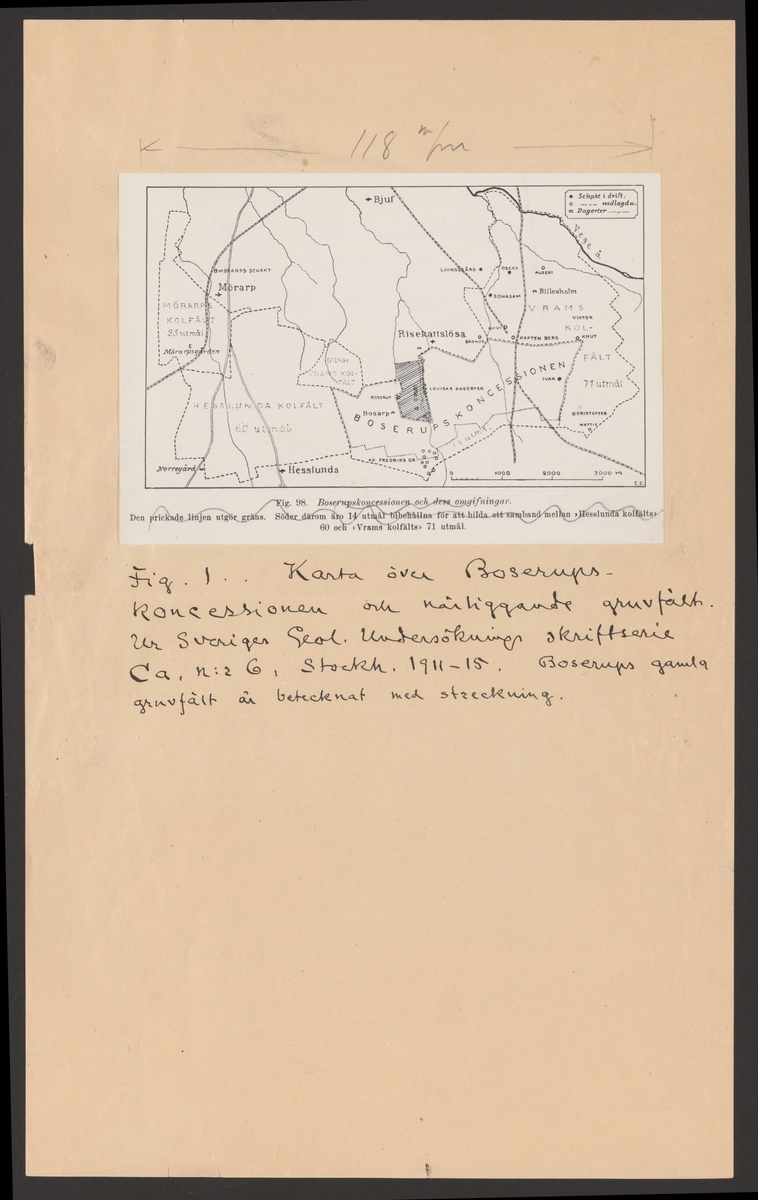 118 m/m
Bjuf
Schakt i drift.
nedlagda.
Dagorter
Vege å
MÖRARPS SCHAKT
Mörarp
MÖRARPS
KOLFÄLT
23 utmål
Mörarpsgården
LJUNGSGÅRD
OSCAR
ALBERT
SÖNADAM
Billesholm
VRAMS
VIKTOR
KOL-
FÄLT
71 utmål
Risekattslösa
KAPTEN BERG
KNUT
IVAR
LOVISAS DAGORTER
BOSERUP
Bosarp
BOSERUPSKONCESSIONEN
KRISTOFFER
HESSLUNDA KOLFÄLT
60 utmål
14 utmål
Norregård
Hesslunda
AD. FREDRIKS GR.
0 1000 2000 3000 m
E.E.
Fig. 98. Boserupskoncessionen och dess omgifningar.
Den prickade linjen utgör gräns. Söder därom äro 14 utmål bibehållna för att bilda ett samband mellan »Hesslunda kolfälts»
60 och »Vrams kolfälts» 71 utmål.
Fig. 1. . Karta över Boserups-
koncessionen och närliggande gruvfält.
Ur Sveriges Geol. Undersöknings skriftserie
Ca, n:r 6, Stockh. 1911-15. Boserups gamla
gruvfält är betecknat med streckning.